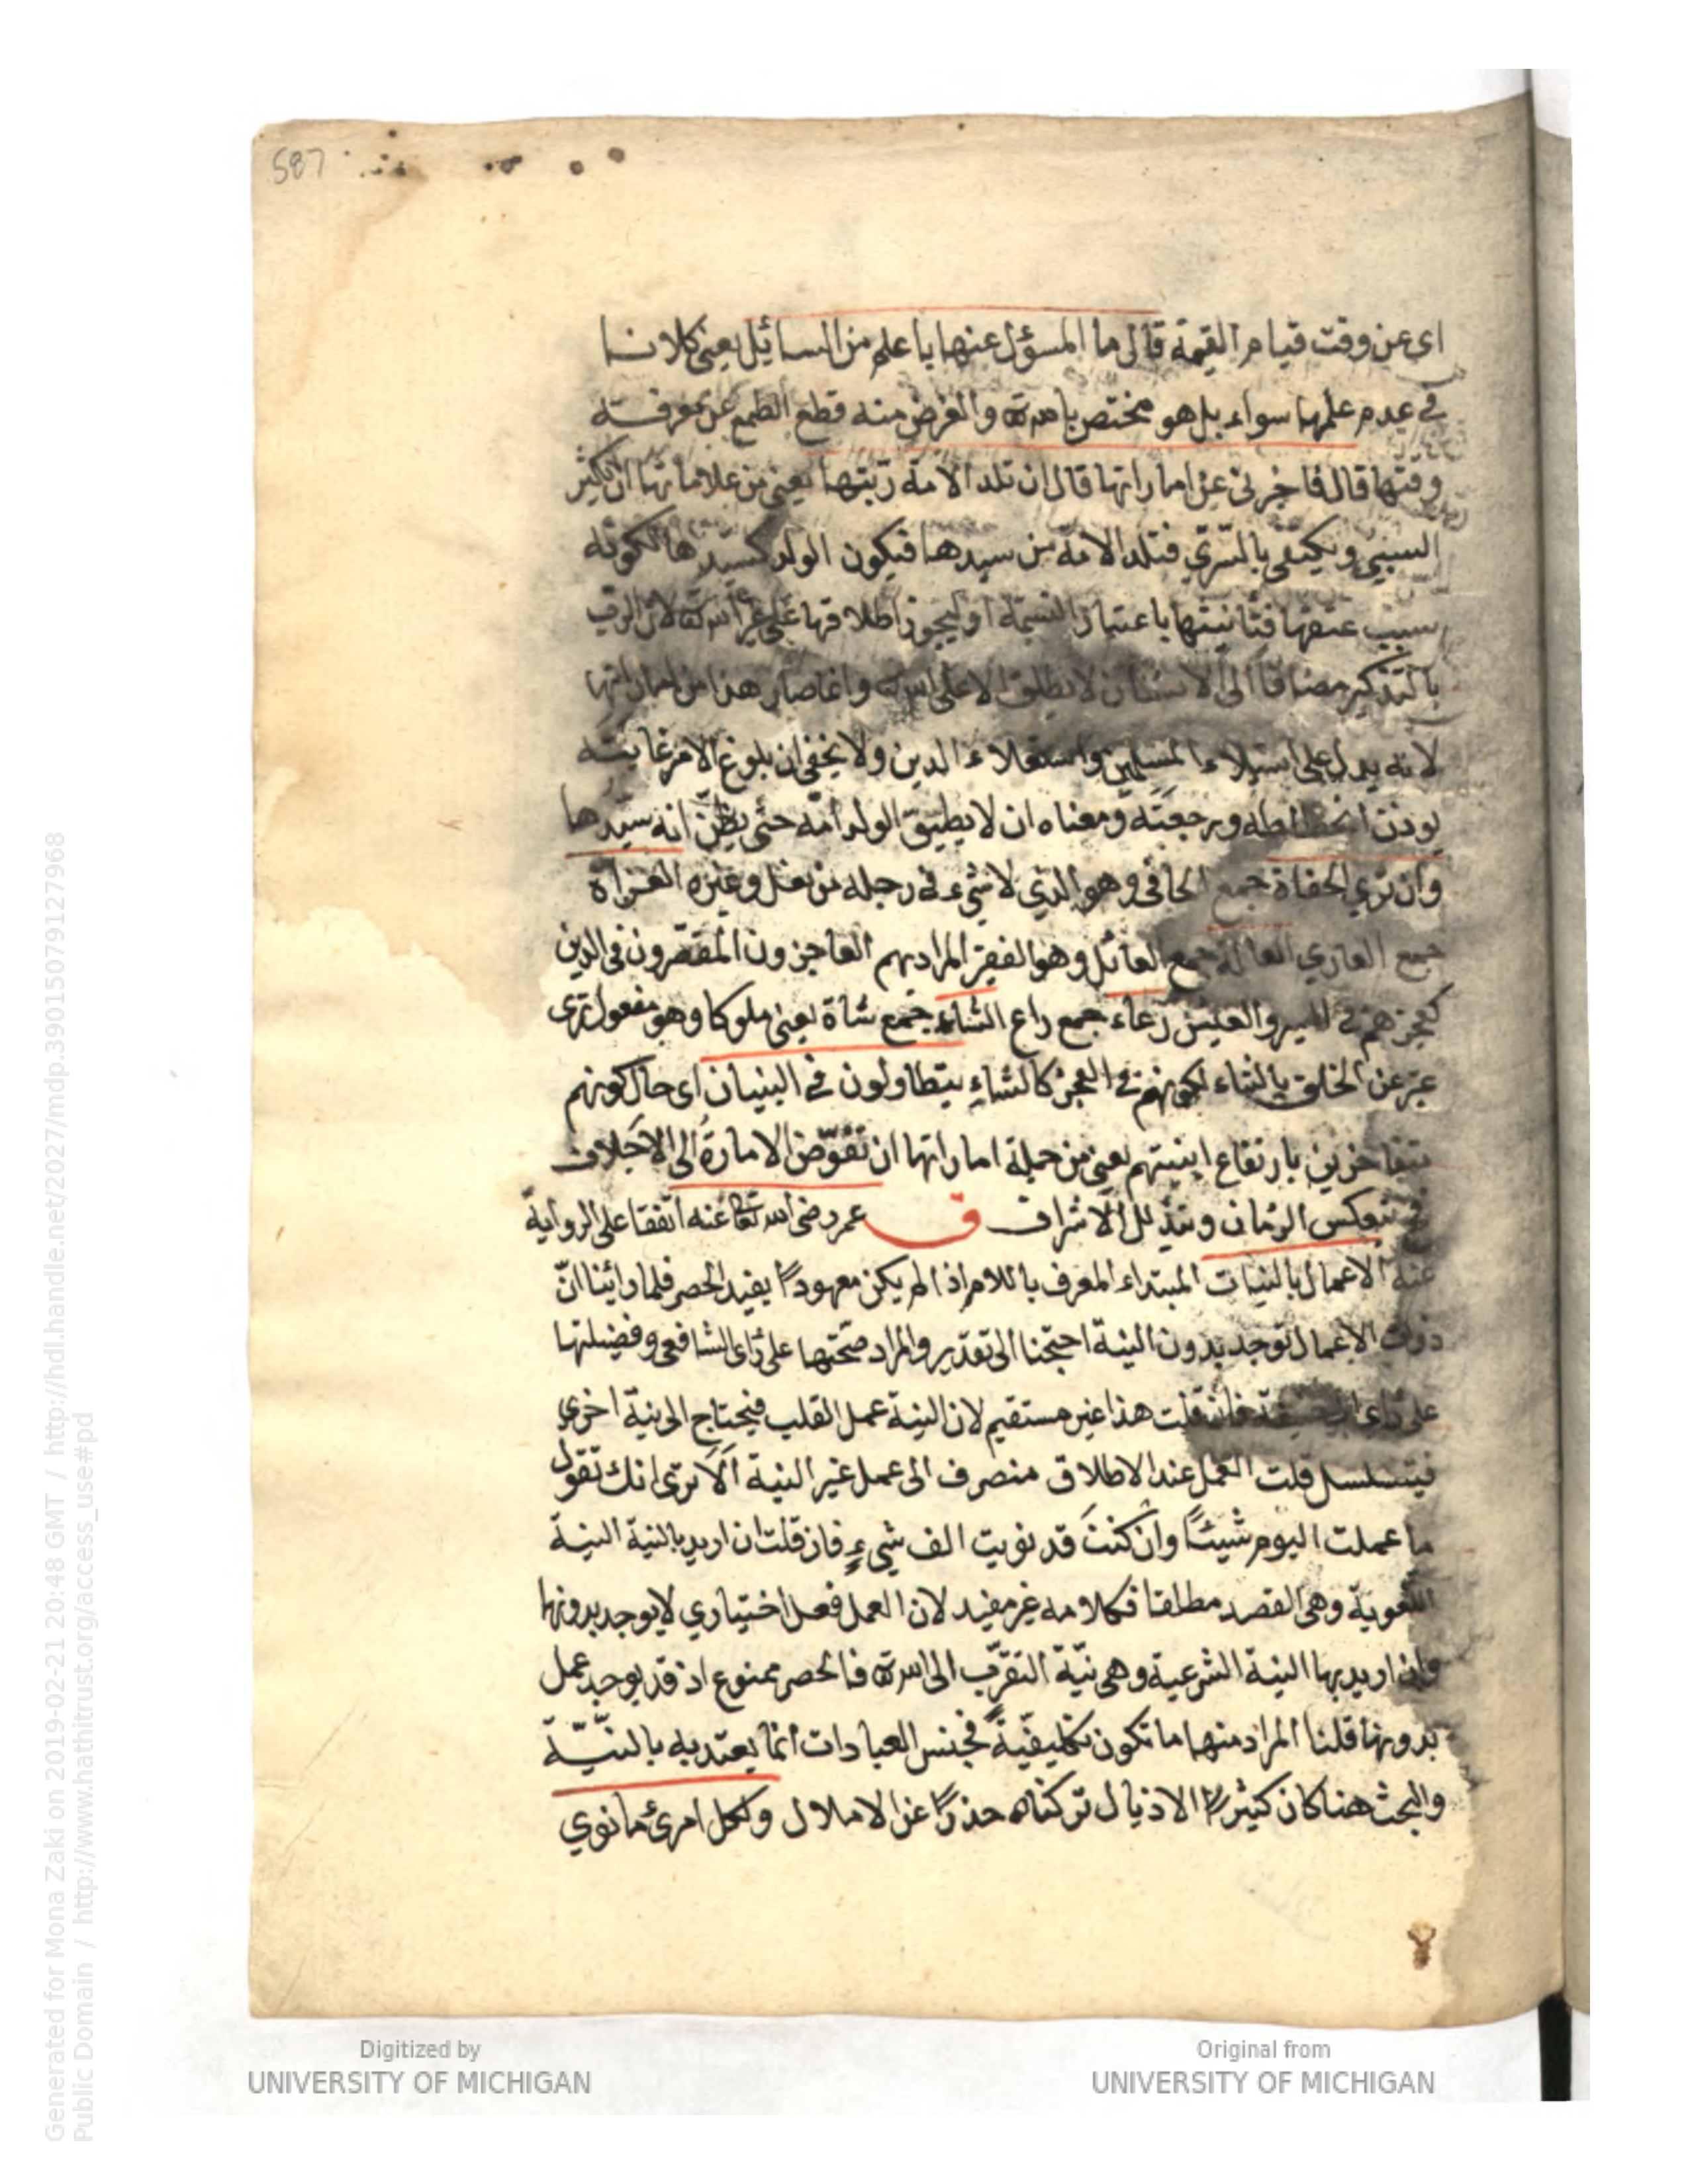 587
اى عن وقت قيام القيمة قال ما المسؤل عنها باعلم من السائل يعنى كلانا
فى عدم علمها سواء بل هو مختص بالله تع والغرض منه قطع الطمع عن معرفة
وقتها قال فاخبرنى عن اماراتها قال ان تلد الامة ربتها يعنى من علاماتها ان يكثر
السبى ويكتفى بالسرّي فتلد الامة من سيدها فيكون الولد كسيدها لكونه
سبب عتقها فتانيثها باعتبار النسمة او ليجوز اطلاقها على غير الله تعا لان الرب
بالتذكير مضافا الى الانسان لا يطلق الا على الله تع وانما صار هذا من اماراتها
لانه يدل على استيلاء المسلمين واستعلاء الدين ولا يخفى ان بلوغ الامر غايته
يوذن انحطاطه ورجعته ومعناه ان لا يطيق الولد امه حتى يظنّ انه سيدها
وان ترى الحفاة جمع الحافى وهو الذي لا شىء فى رجله من نعل وغيره العراة
جمع العاري العالة جمع العائل وهو الفقير المراد بهم العاجزون المقصّرون فى الدين
كعجزهم فى السير والعيش رعاء جمع راع الشاء جمع شاة يعنى ملوكا وهو مفعول ترى
عبّر عن الخلق بالشاء لكونهم فى العجز كالشاء يتطاولون فى البنيان اى حال كونهم
متفاخرين بارتفاع ابنيتهم يعنى من جملة اماراتها ان تفوّض الامارة الى الاجلاف
فينعكس الزمان ويتذلل الاشراف ق عمر رضى الله تعا عنه اتفقا على الرواية
عنه الاعمال بالنيات المبتداء المعرف باللام اذا لم يكن معهودا يفيد الحصر فلما راينا انّ
ذوات الاعمال توجد بدون النية احتجنا الى تقدير والمراد صحتها على راى الشافعى وفضيلتها
على راى ابى حنيفة فان قلت هذا غير مستقيم لان النية عمل القلب فيحتاج الى نية اخري
فيتسلسل قلت العمل عند الاطلاق منصرف الى عمل غير النية الا ترى انك تقول
ما عملت اليوم شيئا وان كنت قد نويت الف شىء فان قلت ان اريد بالنية النية
اللغوية وهى القصد مطلقا فكلامه غير مفيد لان العمل فعل اختياري لا يوجد بدونها
وان اريد بها النية الشرعية وهى نيّة التقرّب الى الله تع فالحصر ممنوع اذ قد يوجد عمل
بدونها قلنا المراد منها ما تكون تكليفيّة فجنس العبادات انما يعتد به بالنيّة
والبحث هنا كان كثير الاذيال تركناه حذرا عن الاملال ولكل امرئ ما نوي
Generated for Mona Zaki on 2019-02-21 20:48 GMT / http://hdl.handle.net/2027/mdp.39015079127968
Public Domain / http://www.hathitrust.org/access_use#pd
Digitized by
UNIVERSITY OF MICHIGAN
Original from
UNIVERSITY OF MICHIGAN